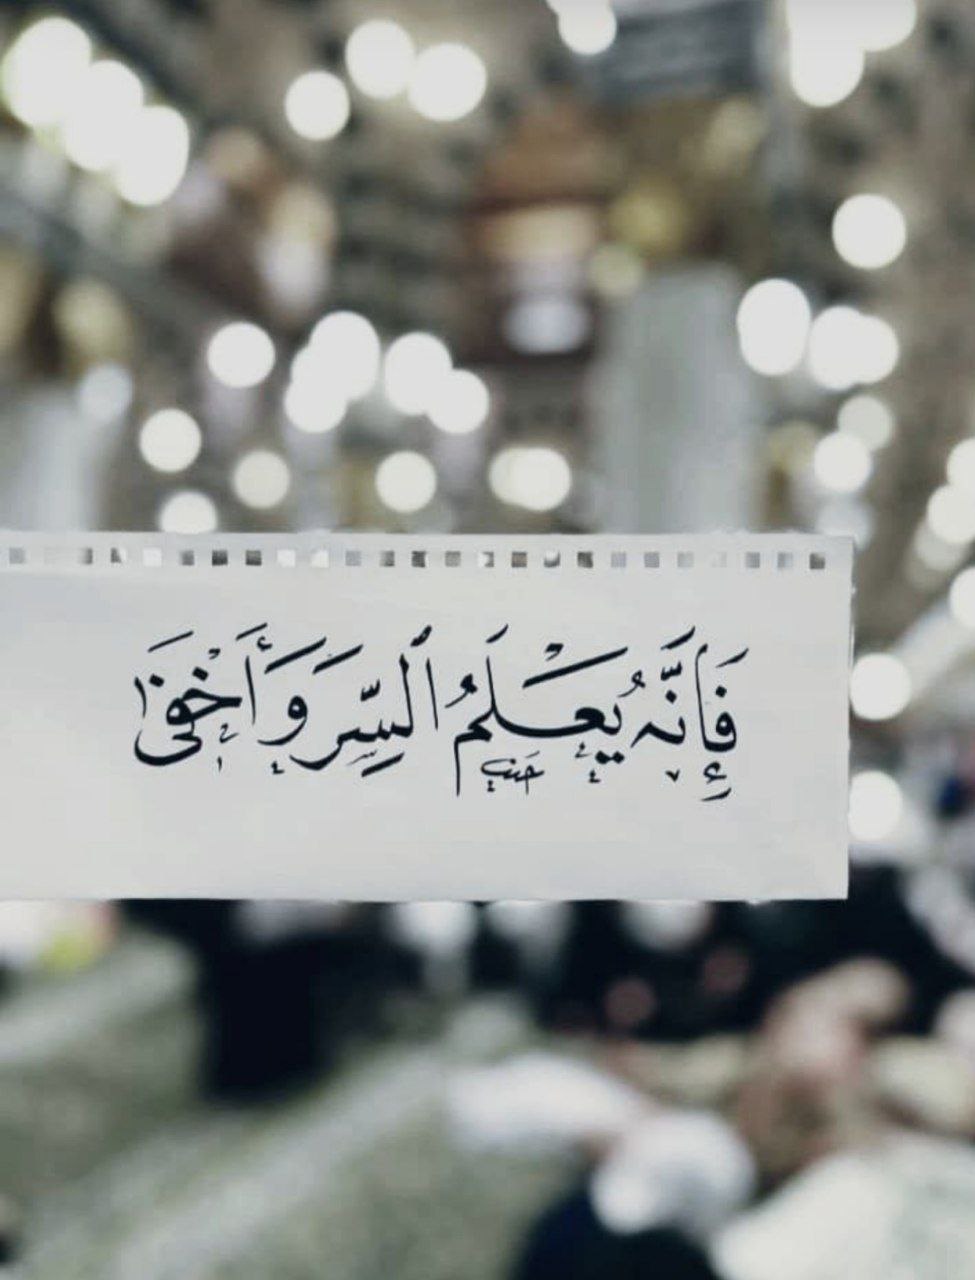 فَإِنَّهُ يَعْلَمُ ٱلسِّرَّ وَأَخْفَى